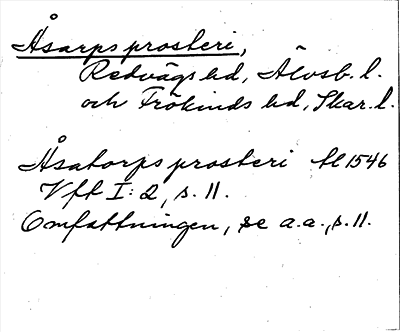 Åsarps prosteri,
Redvägs hd, Älvsb. l.
och Frökinds hd, Skar. l.
Åsatorps prosteri 1546
Vft I: 2, s. 11.
Omfattningen, se a.a., s. 11.